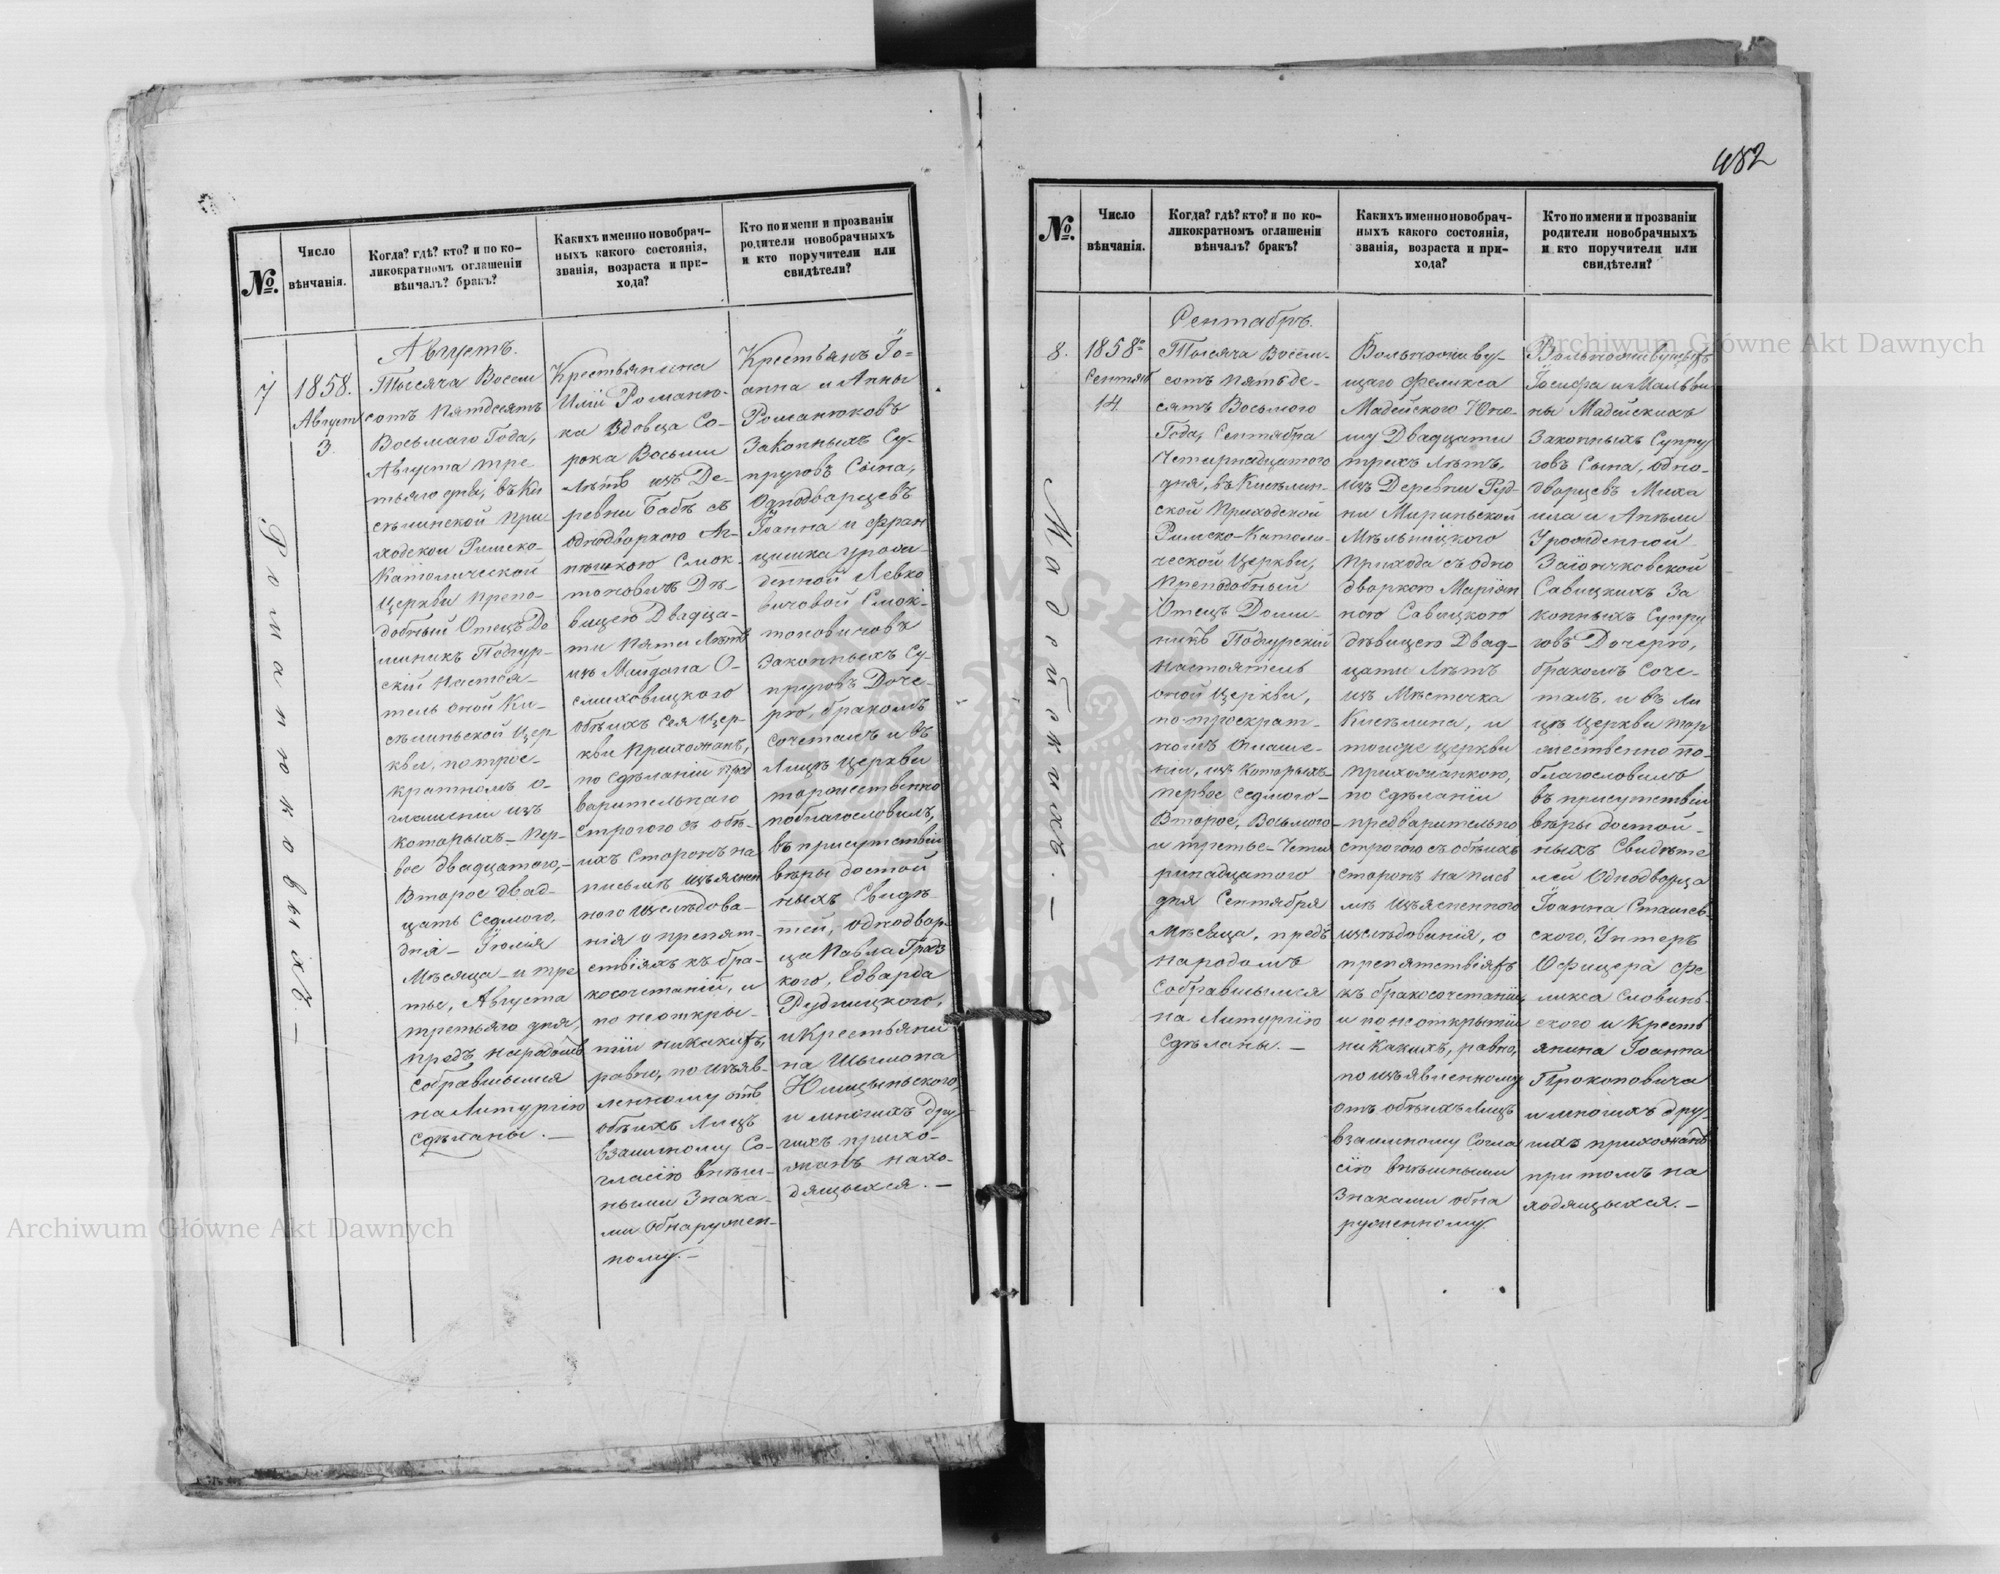 482
№.
Число
вѣнчанія.
Когда? гдѣ? кто? и по ко-
ликократномъ оглашеніи
вѣнчалъ? бракъ?
Какихъ именно новобрач-
ныхъ какого состоянія,
званія, возраста и при-
хода?
Кто по имени и прозванію
родители новобрачныхъ
и кто поручители или
свидѣтели?
7
1858.
Август
3.
Романюковыхъ. —
Августъ.
Тысяча Восем
сотъ Пятдесятъ
Восьмаго Года,
Августа тре
тьяго дня, въ Ки
сѣлинской При
ходской Римско-
Католической
Церкви Препо-
добный Отецъ До
миникъ Подгур-
скій Настоя-
тель оной Ки-
сѣлинской Цер
кви, по трое-
кратномъ о-
глашеніи изъ
которыхъ – Пер-
вое двадцатого, –
Второе двад-
цать Седмого,
дня – Іюлія
Мѣсяца – и тре
тье, Августа
третьяго дня,
предъ народомъ
собравшимся
на Литургію
сдѣланы. —
Крестьянина
Илію Романю-
ка Вдовца Со-
рока Восьми
Лѣтъ изъ Де-
ревни Бабъ съ
однодворкою Аг-
нѣшкою Смок-
тоновичъ Дѣ-
вицею Двадца-
ти Пяти Лѣтъ
изъ Майдана О-
смиховицкого
обѣихъ сея Цер-
кви Прихожанъ,
по сдѣланіи пред
варительнаго
строгого съ обѣ-
ихъ Сторонъ на
письмѣ изъяснен
ного изслѣдова-
нія о препят-
ствіяхъ къ бра-
косочетаній, и
по неоткры-
тіи никакихъ,
равно, по изъяв-
ленному отъ
обѣихъ Лицъ
взаимному Со-
гласію внѣш-
ными Знака-
ми Обнаружен-
ному. —
Крестьянъ Іо-
анна и Анны
Романюковъ
Законныхъ Су-
пруговъ Сына,
Однодворцевъ
Іоанна и Фран
цишка урожд-
денной Левко
вичовой Смок-
тоновичовъ
Законныхъ Су-
пруговъ Доче-
рю, бракомъ
сочеталъ и въ
Лицѣ Церкви
торжественно
поблагословилъ,
въ присутствіи
вѣры достой
ныхъ Свидѣ-
тей, однодвор-
ца Павла Градз
кого, Едварда
Рудницкого,
и Крестьяни
на Шымона
и многихъ дру
гихъ прихо-
жанъ нахо-
дящыхся. —
№.
Число
вѣнчанія.
Когда? гдѣ? кто? и по ко-
ликократномъ оглашеніи
вѣнчалъ? бракъ?
Какихъ именно новобрач-
ныхъ какого состоянія,
званія, возраста и при-
хода?
Кто по имени и прозванію
родители новобрачныхъ
и кто поручители или
свидѣтели?
8.
1858º
Сентяб
14.
Мадейскихъ. —
Сентябръ.
Тысяча Восем-
сотъ пятьде-
сятъ Восьмого
Года, Сентября
Четырнадцатого
дня, въ Кисѣлин-
ской Приходской
Римско-Католи-
ческой Церкви,
Преподобный
Отецъ Доми-
никъ Подгурскій
Настоятель
оной Церкви,
по троекрат-
номъ Оглаше-
ніи, изъ Которыхъ–
первое седмого –
Второе, Восьмого –
и третье – Четы
рнадцатого
дня Сентября
Мѣсяца, предъ
народомъ
Собравшымся
на Литургію
сдѣланы. —
Вольноживу-
щаго Феликса
Мадейского Юно-
шу Двадцати
трехъ Лѣтъ,
изъ Деревни Руд-
ни Мириньской
Мѣльницкого
Прихода съ одно
дворкою Маріян
ною Савицкою
дѣвицею Двад-
цати Лѣтъ
изъ Мѣстечка
Кисѣлина, и
тоиже церкви
прихожанкою,
по сдѣланіи
предварительно
строгого съ обѣихъ
сторонъ на пись
мѣ изъясненного
изслѣдованія, о
препятствіяхъ
къ бракосочетанію,
и по неоткрытіи
никакихъ, равно,
по изъявленному
отъ обѣихъ Лицъ
взаимному Согла
сію внѣшными
Знаками обна
руженному.
Вольноживущихъ
Іосифа и Мальви
ны Мадейскихъ
Законныхъ Супру
говъ Сына, одно-
дворцевъ Миха
ила и Анѣли
Урожденной
Заіончковской
Савицкихъ За
конныхъ Супру
говъ Дочерю,
бракомъ Соче-
талъ, и въ Ли
цѣ Церкви тор
жественно по-
благословилъ
въ присутствіи
вѣры достой-
ныхъ Свидѣте
лей Однодворца
Іоанна Сташев-
ского, Унтеръ
Офицера Фе
ликса Словинь-
ского и Кресть
янина Іоанна
Прокоповича
и многихъ дру-
гихъ прихожанъ
при томъ на
ходящыхся. —
Archiwum Główne Akt Dawnych
Archiwum Główne Akt Dawnych